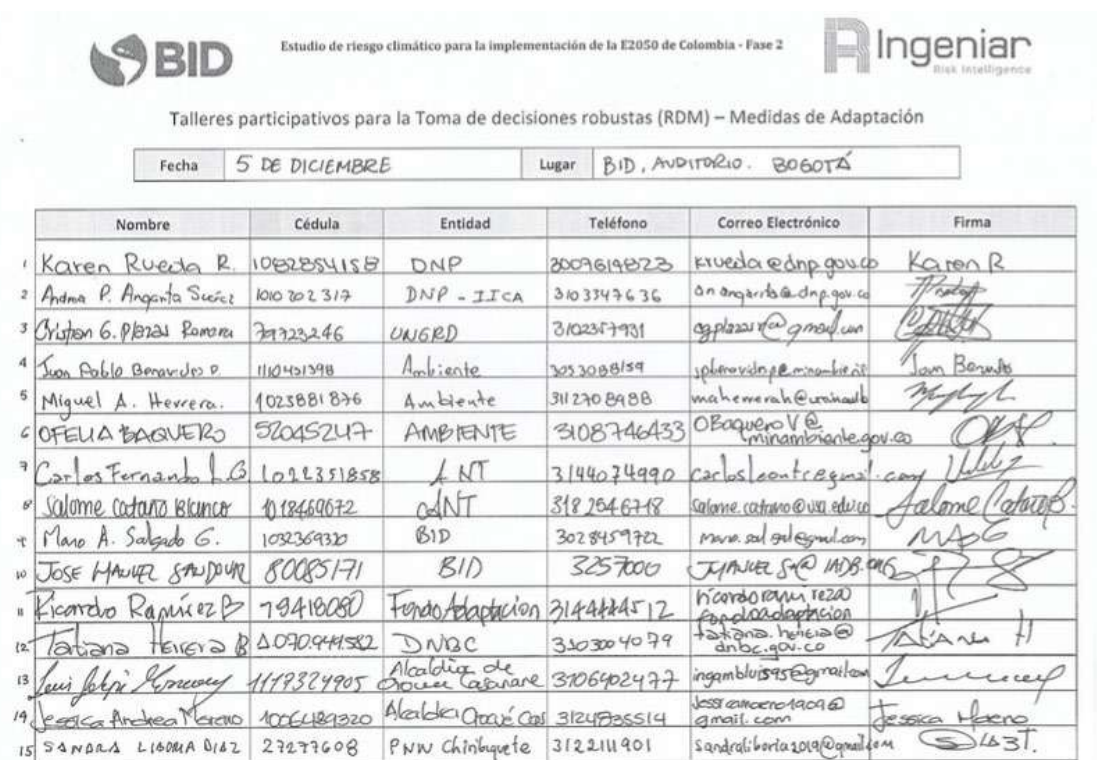 BID
Estudio de riesgo climático para la implementación de la E2050 de Colombia - Fase 2
Ingeniar
Risk Intelligence
Talleres participativos para la Toma de decisiones robustas (RDM) – Medidas de Adaptación
Fecha 5 DE DICIEMBRE Lugar BID, AUDITORIO. BOGOTÁ
Nombre Cédula Entidad Teléfono Correo Electrónico Firma
1 Karen Rueda R. 1082854158 DNP 3007619823 krueda@dnp.gov.co Karen R
2 Andrea P. Angarita Suárez 1010202317 DNP - IICA 3103347636
3 Cristian G. Plazas Romero 79723246 UNGRD 3102357931
4 Juan Pablo Benavides P. 1110431398 Ambiente 3053088159
5 Miguel A. Herrera. 1023881876 Ambiente 3112708988
6 OFELIA BAQUERO 52045247 AMBIENTE 3108746433 OBaqueroV@
minambiente.gov.co
7 Carlos Fernando L.G 1022351858 ANT 3144074990
8 Salome Cataño Blanco 1018469672 ANT 3182546718 Salome Cataño B.
9 A. Salgado G. 1032369320 BID 3028459722 MASG
10 JOSE MANUEL SANDOVAL 80085171 BID 3257000
11 Ricardo Ramírez B 79418080 Fondo Adaptacion 3144444512
12 Tatiana Herrera B 1.070.949.582 DNBC 3103004079 tatiana.herrera@
dnbc.gov.co Tatiana H
13 Luis 1119324905 Alcaldia de
Casanare 3106402477
14 Jessica Andrea Moreno 1006489320 Alcaldia 3124835514 Jessicamoreno1909@
gmail.com Jessica Moreno
15 SANDRA LIBORIA DIAZ 27277608 PNN Chiribiquete 3122111901 sandraliboria2019@gmail.com